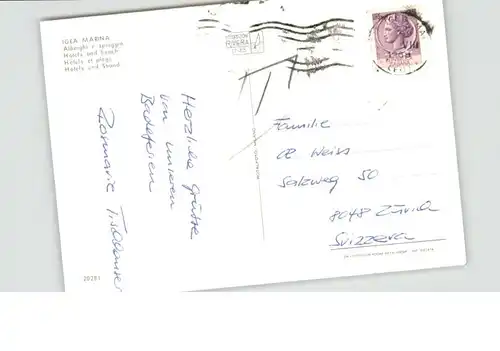 IGEA MARINA
Alberghi e spiaggia
Hotels and beach
Hôtels et plage
Hotels und Strand
RIVIERA
Herzliche Grüsse
von unseren
Badeferien
Rosmarie Tischhauser
Familie
Weiss
Salzweg 50
8048 Zürich
Svizzera